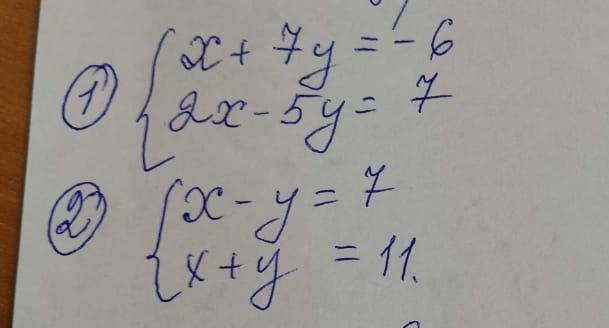 ① { x + 7y = - 6
2x - 5y = 7
② { x - y = 7
x + y = 11.